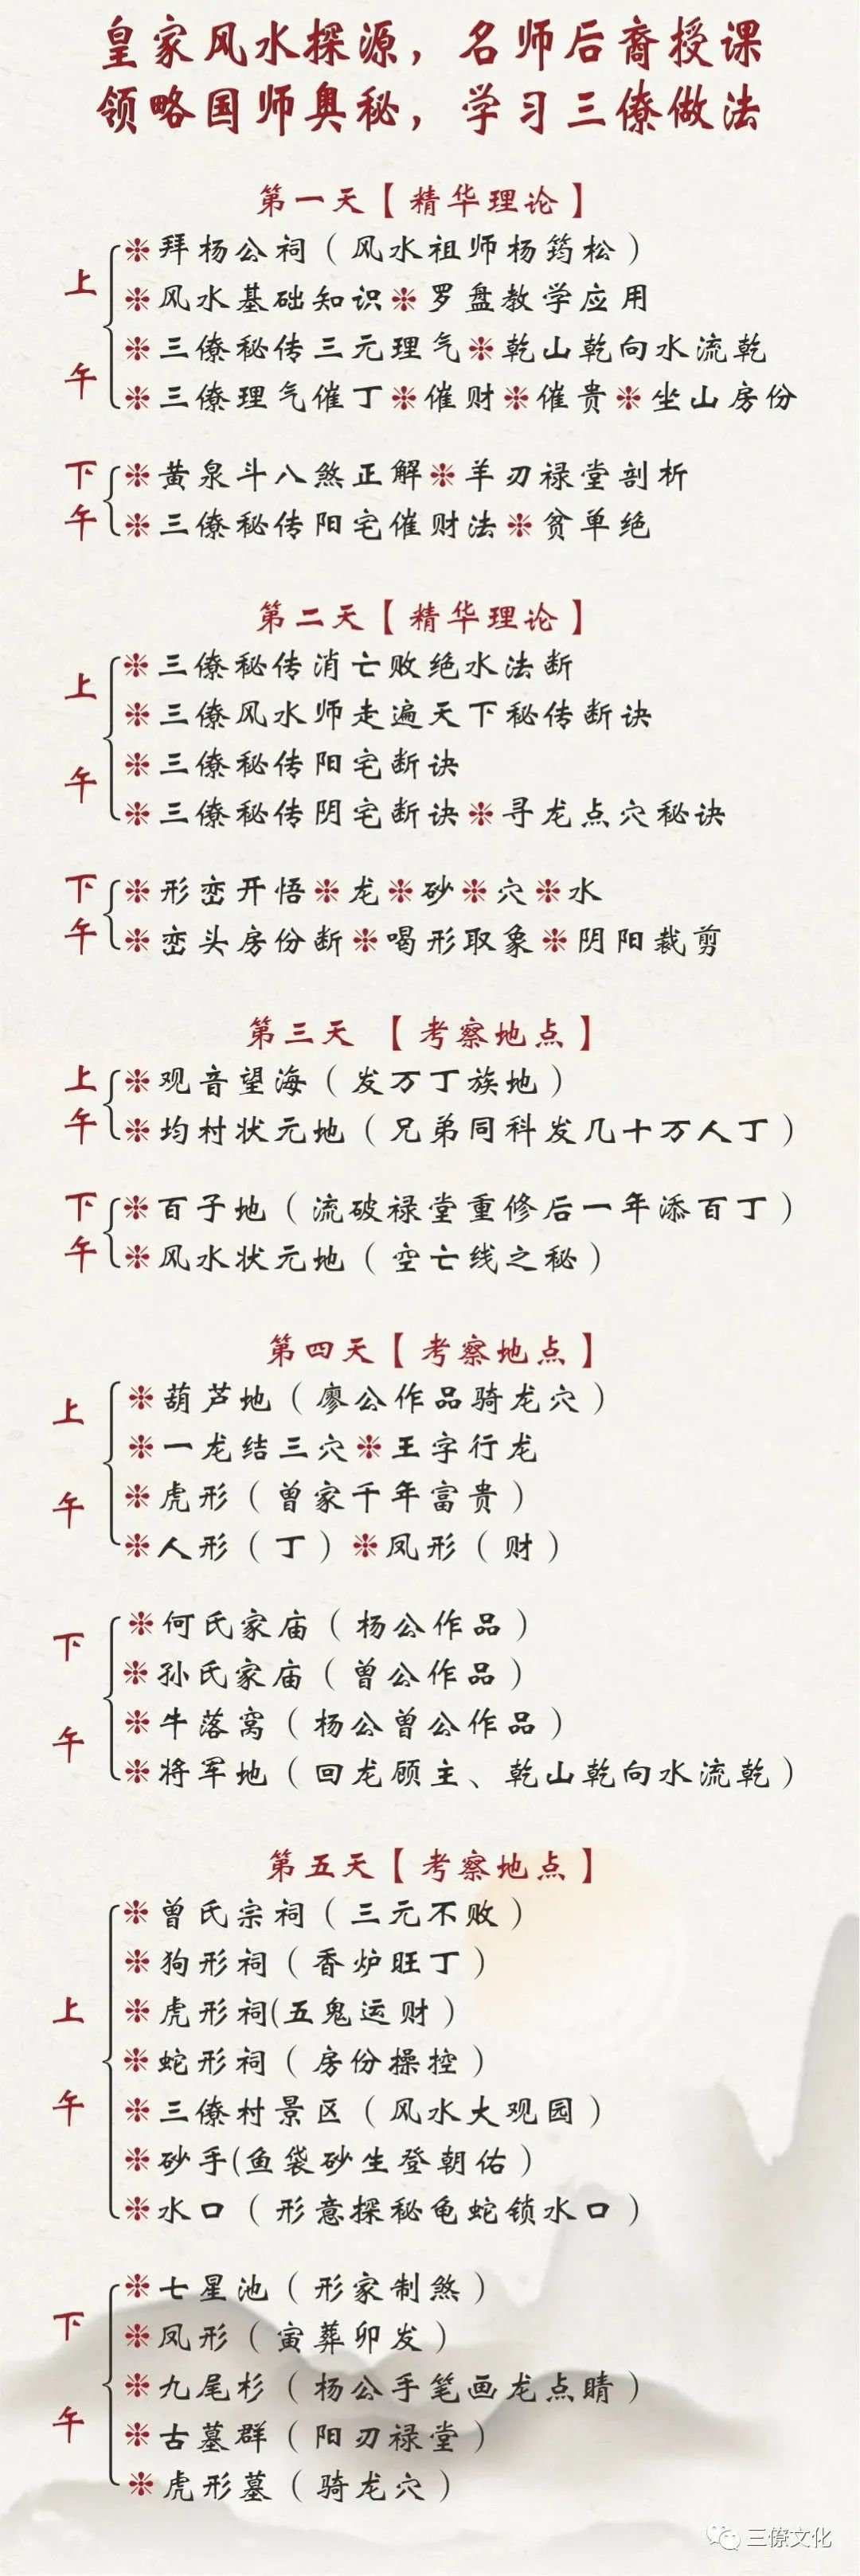 皇家风水探源，名师后裔授课
领略国师奥秘，学习三僚做法
第一天【精华理论】
上午
❉拜杨公祠（风水祖师杨筠松）
❉风水基础知识❉罗盘教学应用
❉三僚秘传三元理气❉乾山乾向水流乾
❉三僚理气催丁❉催财❉催贵❉坐山房份
下午
❉黄泉斗八煞正解❉羊刃禄堂剖析
❉三僚秘传阳宅催财法❉贫单绝
第二天【精华理论】
上午
❉三僚秘传消亡败绝水法断
❉三僚风水师走遍天下秘传断诀
❉三僚秘传阳宅断诀
❉三僚秘传阴宅断诀❉寻龙点穴秘诀
下午
❉形峦开悟❉龙❉砂❉穴❉水
❉峦头房份断❉喝形取象❉阴阳裁剪
第三天 【考察地点】
上午
❉观音望海（发万丁族地）
❉均村状元地（兄弟同科发几十万人丁）
下午
❉百子地（流破禄堂重修后一年添百丁）
❉风水状元地（空亡线之秘）
第四天【考察地点】
上午
❉葫芦地（廖公作品骑龙穴）
❉一龙结三穴❉王字行龙
❉虎形（曾家千年富贵）
❉人形（丁）❉凤形（财）
下午
❉何氏家庙（杨公作品）
❉孙氏家庙（曾公作品）
❉牛落窝（杨公曾公作品）
❉将军地（回龙顾主、乾山乾向水流乾）
第五天【考察地点】
上午
❉曾氏宗祠（三元不败）
❉狗形祠（香炉旺丁）
❉虎形祠(五鬼运财）
❉蛇形祠（房份操控）
❉三僚村景区（风水大观园）
❉砂手(鱼袋砂生登朝佑）
❉水口（形意探秘龟蛇锁水口）
下午
❉七星池（形家制煞）
❉凤形（寅葬卯发）
❉九尾杉（杨公手笔画龙点睛）
❉古墓群（阳刃禄堂）
❉虎形墓（骑龙穴）
三僚文化